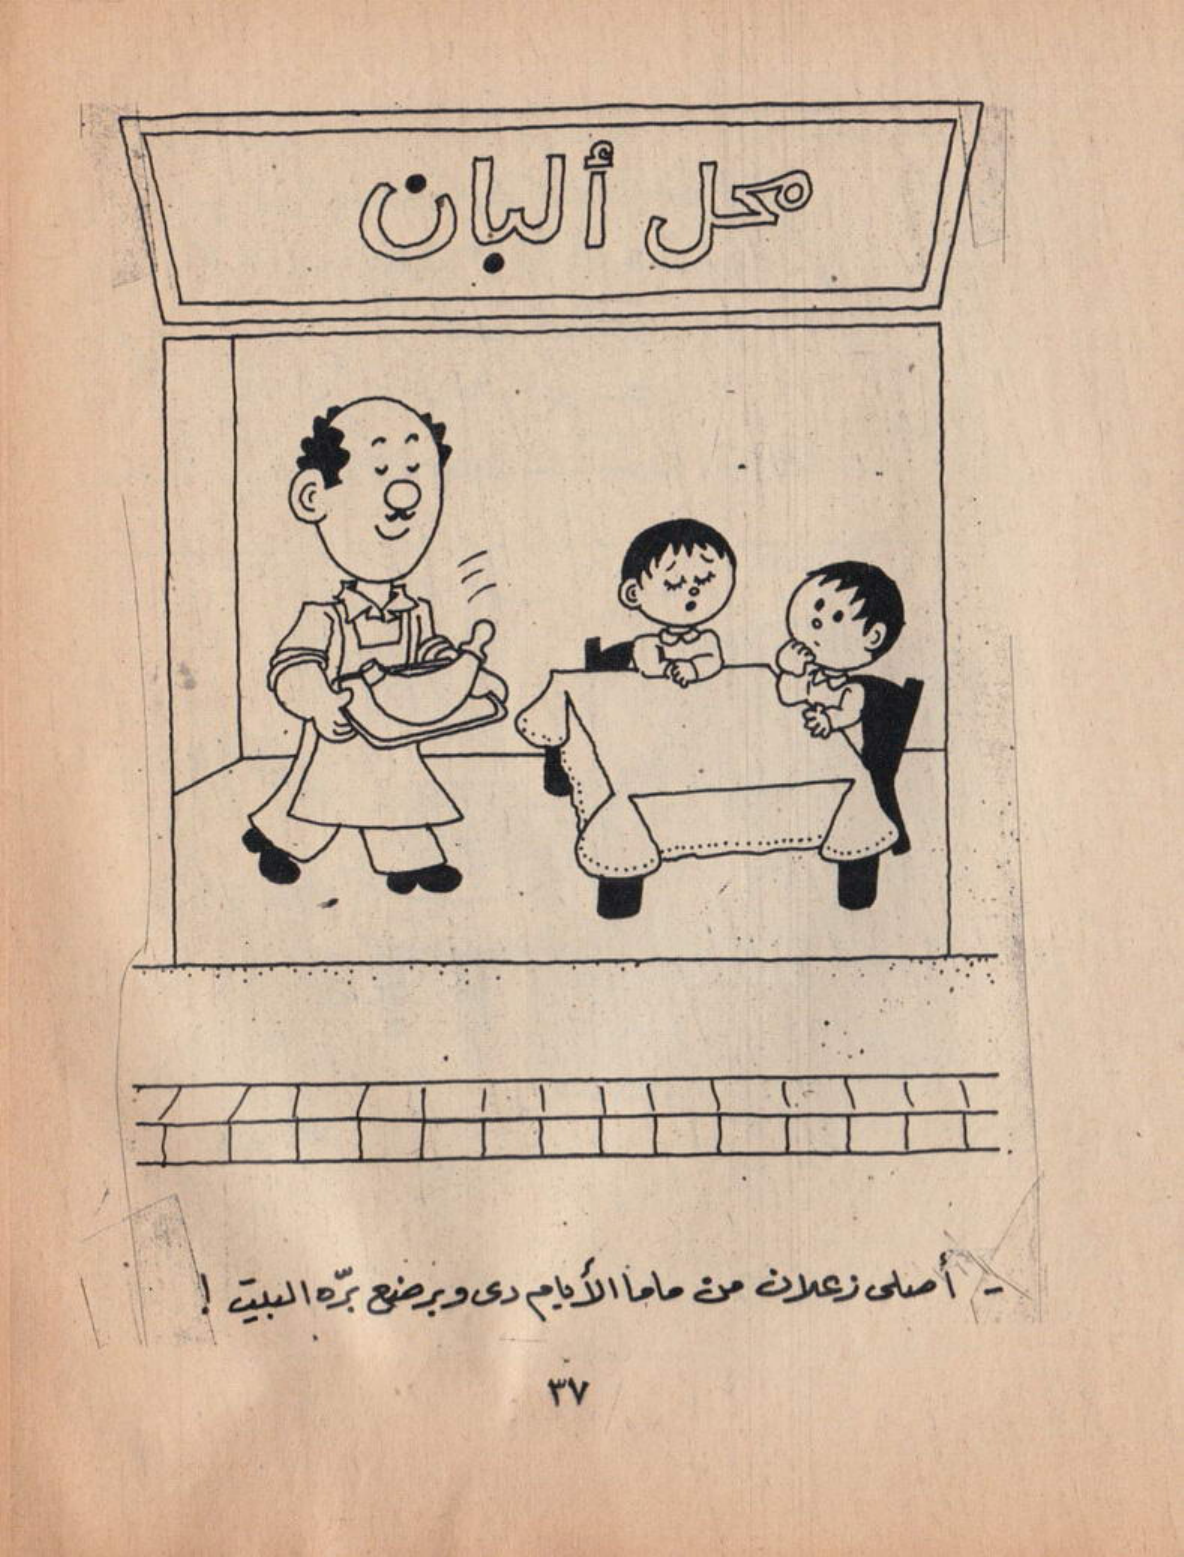 محل ألبان
- أصلى زعلان من ماما الأيام دى وبرضع برّه البيت !
٣٧